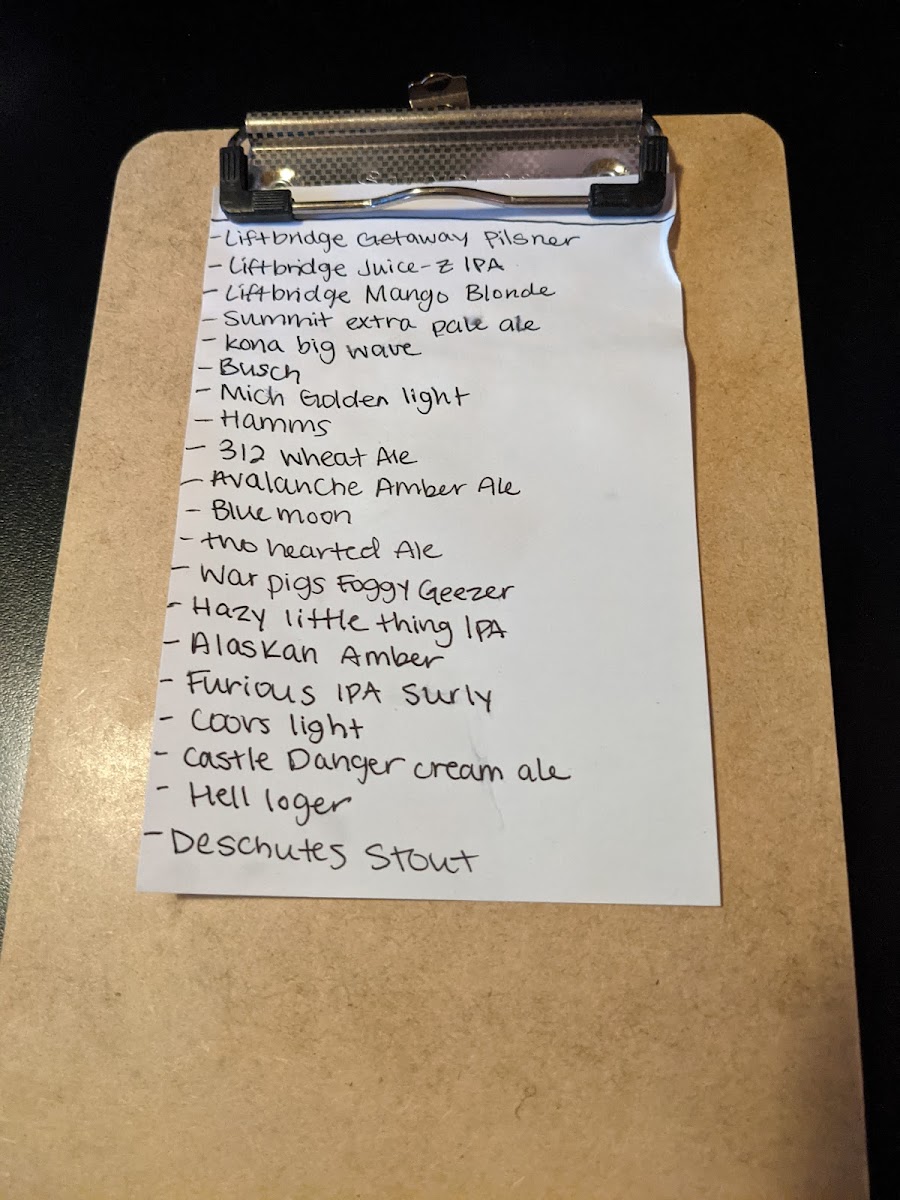 - Liftbridge Getaway Pilsner
- Liftbridge Juice-Z IPA
- Liftbridge Mango Blonde
- Summit extra pale ale
- Kona big wave
- Busch
- Mich Golden light
- Hamms
- 312 Wheat Ale
- Avalanche Amber Ale
- Blue moon
- two hearted Ale
- War pigs Foggy Geezer
- Hazy little thing IPA
- Alaskan Amber
- Furious IPA Surly
- Coors light
- Castle Danger cream ale
- Hell loger
- Deschutes Stout